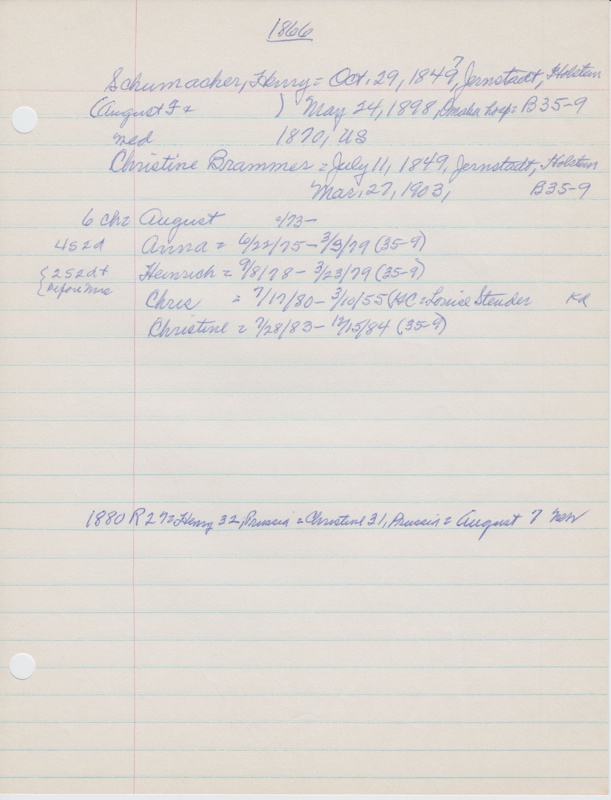 1866
Schumacher, Henry = Oct. 29, 1849?, Jernstadt, Holstein
(August Fx ) May 24, 1898, Omaha hosp = B35-9
med 1870, US
Christine Brammer = July 11, 1849, Jernstadt, Holstein
Mar. 27, 1903, B35-9
6 ch = August /73-
4 s 2 d Anna = 6/22/75 - 3/3/79 (35-9)
{2 s 2 d + Heinrich = 9/8/78 - 3/23/79 (35-9)
before Mrs
Chris = 7/17/80 - 3/10/55 (KC = Louise Stender Kd
Christine = 7/28/83 - 12/15/84 (35-9)
1880 R 27 = Henry 32, Prussia = Christine 31, Prussia = August 7 Neb